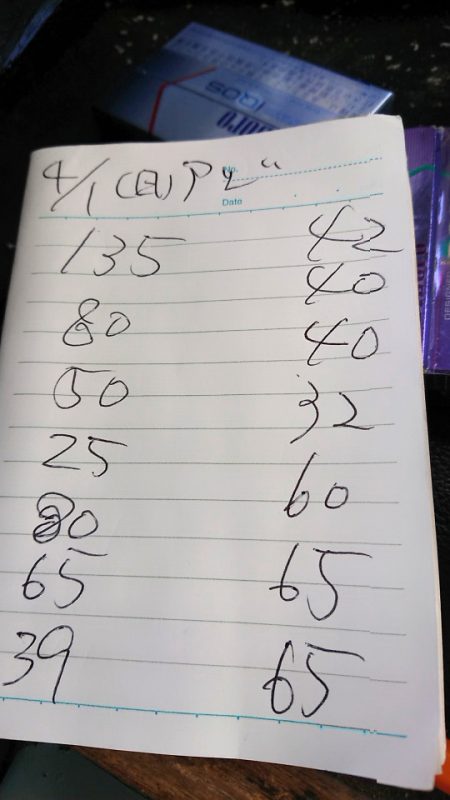 IQOS
No.
4/1
Date
135 42
40
80 40
50 32
25 60
80
65 65
39 65